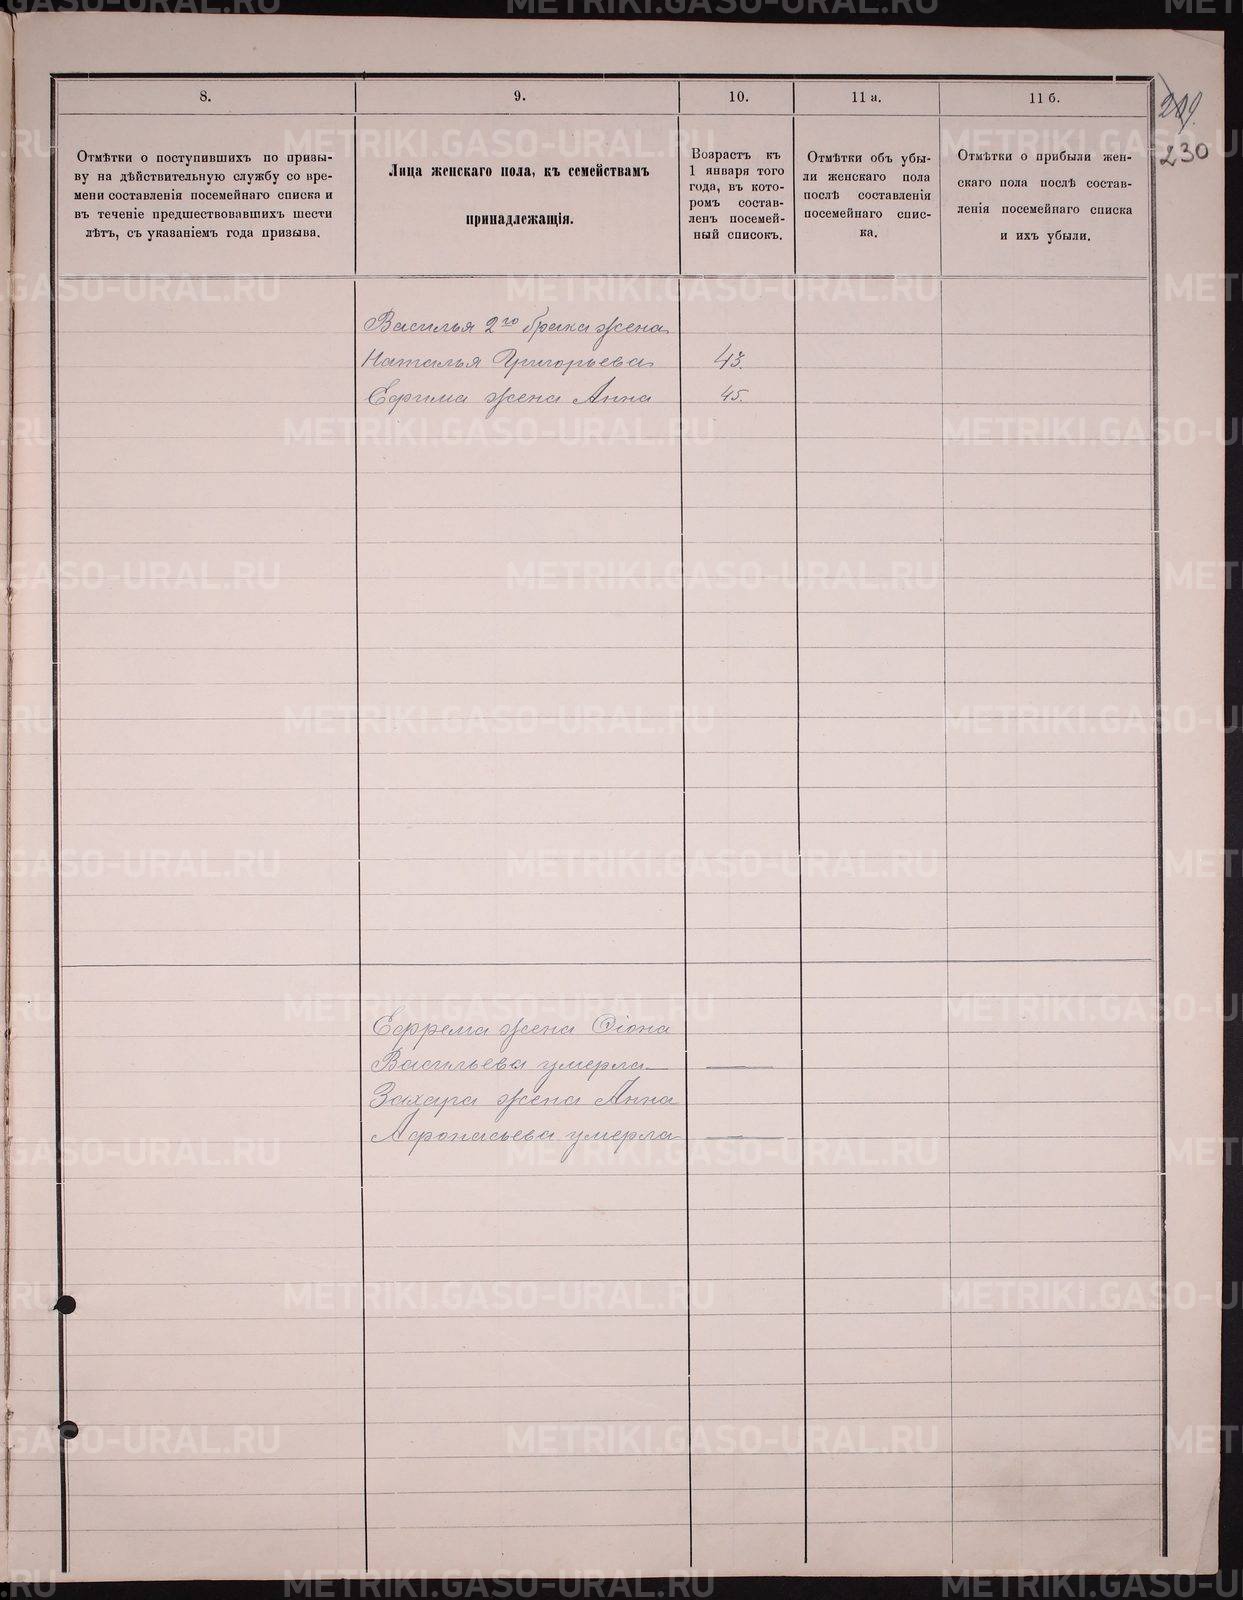 8.
9.
10.
11 а.
11 б.
230
Отмѣтки о поступившихъ по призы-
ву на дѣйствительную службу со вре-
мени составленія посемейнаго списка и
въ теченіе предшествовавшихъ шести
лѣтъ, съ указаніемъ года призыва.
Лица женскаго пола, къ семействамъ
принадлежащія.
Возрастъ къ
1 января того
года, въ кото-
ромъ состав-
ленъ посемей-
ный списокъ.
Отмѣтки объ убы-
ли женскаго пола
послѣ составленія
посемейнаго спис-
ка.
Отмѣтки о прибыли жен-
скаго пола послѣ состав-
ленія посемейнаго списка
и ихъ убыли.
Василья 2го брака жена
Наталья Григорьева 43.
Ефима жена Анна 45.
Ефрема жена
Васильева умерла —
Захара жена Анна
Афонасьева умерла —
METRIKI.GASO-URAL.RU